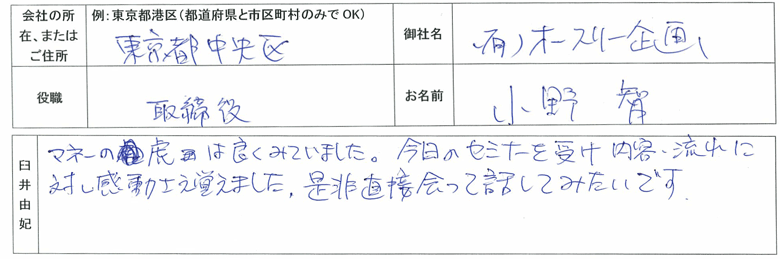 会社の所在、またはご住所
例:東京都港区(都道府県と市区町村のみでOK)
東京都中央区
御社名
(有)オースリー企画
役職
取締役
お名前
小野 智
臼井由妃
マネーの虎は良くみていました。今日のセミナーを受け内容・流れに
対し感動さえ覚えました。是非直接会って話してみたいです